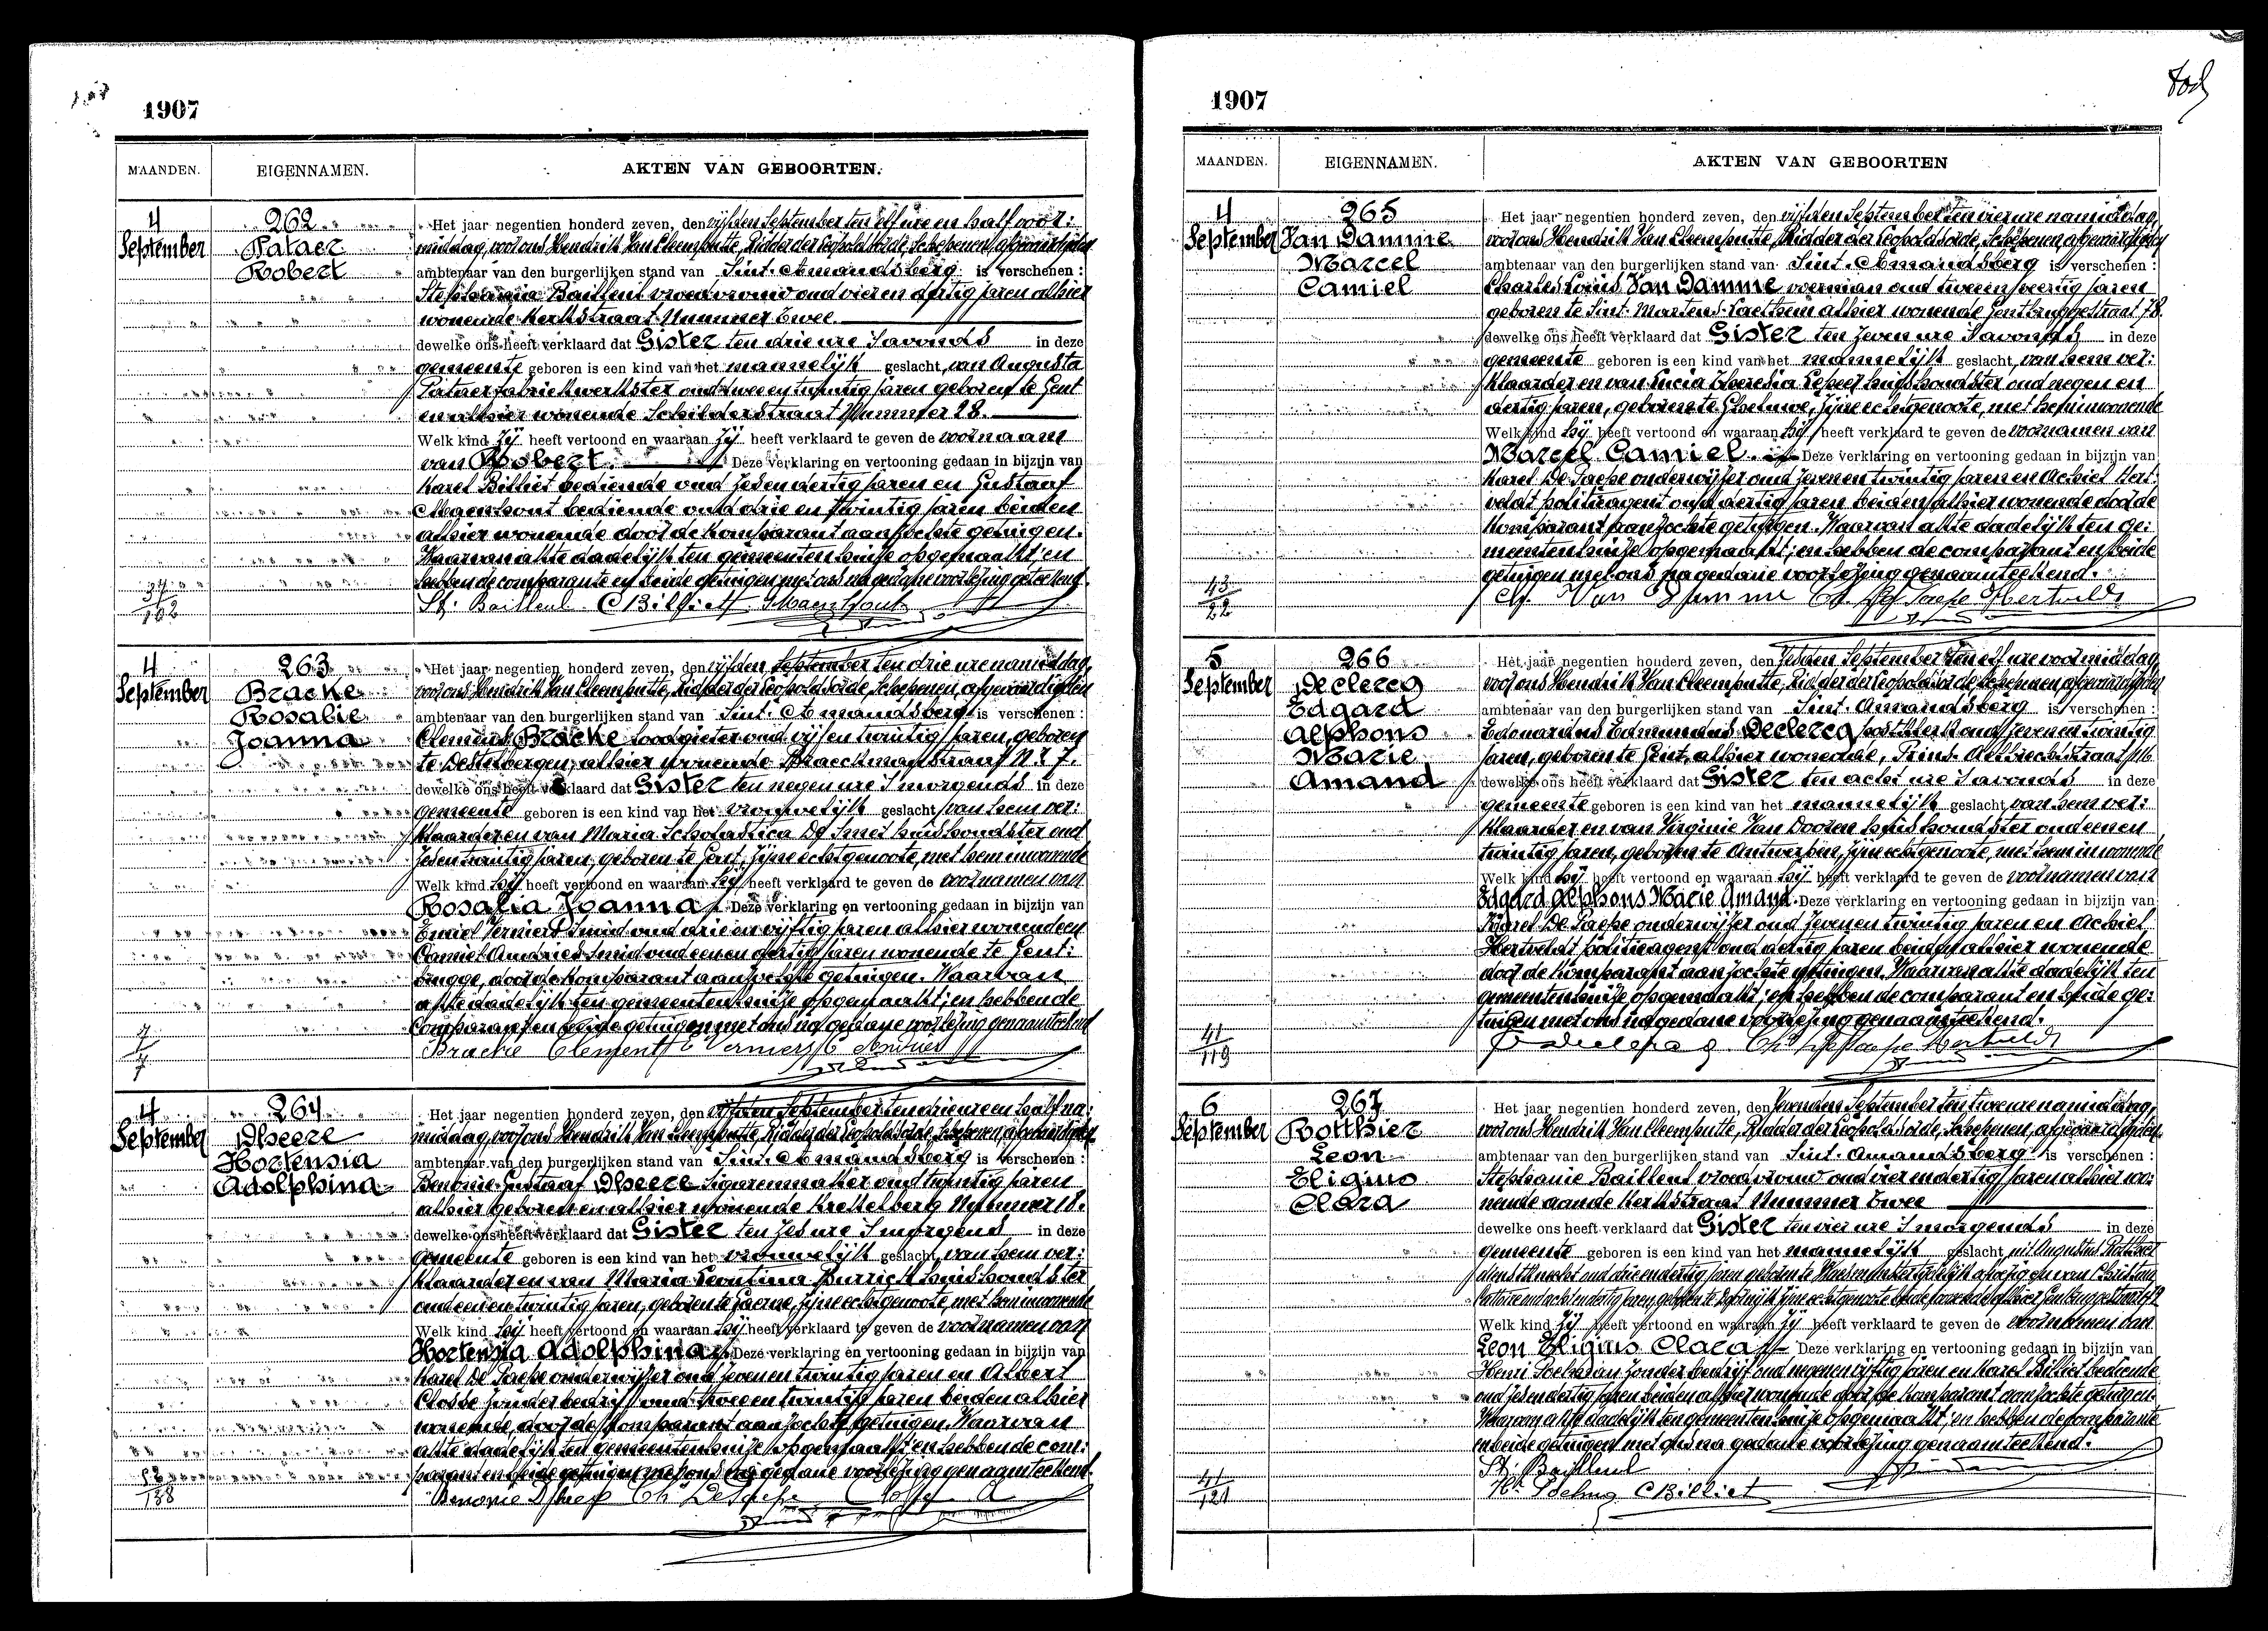 1907
MAANDEN. EIGENNAMEN. AKTEN VAN GEBOORTEN.
4 September
262
Pataer
Robert
Het jaar negentien honderd zeven, den vijfden September ten elf ure en half voor:
middag, voor ons Hendrik Van Cleemputte, Ridder der Leopoldsorde, Schepenen, afgevaardigden
ambtenaar van den burgerlijken stand van Sint-Amandsberg is verschenen:
Stephania Bailleul vroedvrouw oud vier en dertig jaren alhier
wonende Kerkstraat Nummer Twee.
dewelke ons heeft verklaard dat Gister ten drie ure 's avonds in deze
gemeente geboren is een kind van het mannelijk geslacht, van Augusta
Pataer fabriekwerkster oud twee en twintig jaren geboren te Gent
en alhier wonende Schilderstraat Nummer 28.
Welk kind zij heeft vertoond en waaraan zij heeft verklaard te geven de voornaam
van Robert. Deze verklaring en vertooning gedaan in bijzijn van
Karel Billiet bediende oud zes en dertig jaren en Gustaaf
Maenhout bediende oud drie en twintig jaren beiden
alhier wonende door de komparant aanzochte getuigen.
Waarvan akte dadelijk ten gemeentenhuize opgemaakt; en
hebben de comparante en beide getuigen met ons na gedane voorlezing geteekend.
St. Bailleul C Billiet G Maenhout
37
102
4 September
263
Bracke
Rosalie
Joanna
Het jaar negentien honderd zeven, den vijfden September ten drie ure namiddag,
voor ons Hendrik Van Cleemputte, Ridder der Leopoldsorde, Schepenen, afgevaardigden
ambtenaar van den burgerlijken stand van Sint-Amandsberg is verschenen:
Clement Bracke loodgieter oud vijf en twintig jaren, geboren
te Destelbergen, alhier wonende Braeckmanstraat Nr 7.
dewelke ons heeft verklaard dat Gister ten negen ure 's morgends in deze
gemeente geboren is een kind van het vrouwelijk geslacht, van hem ver:
klaarder en van Maria Scholastica De Smet huishoudster oud
zes en twintig jaren, geboren te Gent, zijne echtgenoote, met hem inwonende
Welk kind hij heeft vertoond en waaraan hij heeft verklaard te geven de voornamen van
Rosalia Joanna. Deze verklaring en vertooning gedaan in bijzijn van
Emiel Verniers smid oud drie en vijftig jaren alhier wonende en
Camiel Andries smid oud een en dertig jaren wonende te Gent:
brugge, door de komparant aanzochte getuigen. Waarvan
akte dadelijk ten gemeentenhuize opgemaakt; en hebben de
comparant en beide getuigen met ons na gedane voorlezing genaamteekend
Bracke Clement E Verniers C Andries
7
7
4 September
264
Dheere
Hortensia
Adolphina
Het jaar negentien honderd zeven, den vijfden September ten drie ure en half na:
middag, voor ons Hendrik Van Cleemputte, Ridder der Leopoldsorde, Schepenen, afgevaardigden
ambtenaar van den burgerlijken stand van Sint-Amandsberg is verschenen:
Benonie Gustaaf Dheere sigarenmaker oud twintig jaren
alhier geboren en alhier wonende Krekelberg Nummer 18.
dewelke ons heeft verklaard dat Gister ten zes ure 's morgens in deze
gemeente geboren is een kind van het vrouwelijk geslacht, van hem ver:
klaarder en van Maria Leontina Burrick huishoudster
oud een en twintig jaren, geboren te Laerne, zijne echtgenoote, met hem inwonende
Welk kind hij heeft vertoond en waaraan hij heeft verklaard te geven de voornamen van
Hortensia Adolphina. Deze verklaring en vertooning gedaan in bijzijn van
Karel De Paepe onderwijzer oud zeven en twintig jaren en Albert
Closse zonder bedrijf oud twee en twintig jaren beiden alhier
wonende, door de komparant aanzochte getuigen. Waarvan
akte dadelijk ten gemeentenhuize opgemaakt; en hebben de com:
parant en beide getuigen met ons na gedane voorlezing genaamteekend.
Benonie Dheere Ch De Paepe Closse A
138
1907
MAANDEN. EIGENNAMEN. AKTEN VAN GEBOORTEN
4 September
265
Van Damme
Marcel
Camiel
Het jaar negentien honderd zeven, den vijfden September ten vier ure namiddag,
voor ons Hendrik Van Cleemputte, Ridder der Leopoldsorde, Schepenen, afgevaardigden
ambtenaar van den burgerlijken stand van Sint-Amandsberg is verschenen:
Charles Louis Van Damme voerman oud twee en veertig jaren
geboren te Sint-Martens-Laethem alhier wonende Gentbruggestraat 78.
dewelke ons heeft verklaard dat Gister ten zeven ure 's avonds in deze
gemeente geboren is een kind van het mannelijk geslacht, van hem ver:
klaarder en van Lucia Theresia Lepeer huishoudster oud negen en
dertig jaren, geboren te Gheluwe, zijne echtgenoote, met hem inwonende
Welk kind hij heeft vertoond en waaraan hij heeft verklaard te geven de voornamen van
Marcel Camiel. Deze verklaring en vertooning gedaan in bijzijn van
Karel De Paepe onderwijzer oud zeven en twintig jaren en Achiel Hert:
veldt politieagent oud dertig jaren beiden alhier wonende door de
komparant aanzochte getuigen. Waarvan akte dadelijk ten ge:
meentenhuize opgemaakt; en hebben de comparant en beide
getuigen met ons na gedane voorlezing genaamteekend.
Ch. Van Damme Ch De Paepe Hertveldt
43
22
5 September
266
Declercq
Edgard
Alphons
Marie
Amand
Het jaar negentien honderd zeven, den zesden September ten elf ure voormiddag,
voor ons Hendrik Van Cleemputte, Ridder der Leopoldsorde, Schepenen, afgevaardigden
ambtenaar van den burgerlijken stand van Sint-Amandsberg is verschenen:
Edouardus Edmundus Declercq postklerk oud zeven en twintig
jaren, geboren te Gent, alhier wonende, Prins Albrechtstraat 116
dewelke ons heeft verklaard dat Gister ten acht ure 's avonds in deze
gemeente geboren is een kind van het mannelijk geslacht van hem ver:
klaarder en van Virginie Van Dooren huishoudster oud een en
twintig jaren, geboren te Antwerpen, zijne echtgenoote, met hem inwonende
Welk kind hij heeft vertoond en waaraan hij heeft verklaard te geven de voornamen van
Edgard Alphons Marie Amand. Deze verklaring en vertooning gedaan in bijzijn van
Karel De Paepe onderwijzer oud zeven en twintig jaren en Achiel
Hertveldt politieagent oud dertig jaren beiden alhier wonende
door de komparant aanzochte getuigen. Waarvan akte dadelijk ten
gemeentenhuize opgemaakt; en hebben de comparant en beide ge:
tuigen met ons na gedane voorlezing genaamteekend.
Ch De Paepe Hertveldt
41
119
6 September
267
Botthier
Leon
Eligino
Clara
Het jaar negentien honderd zeven, den zevenden September ten twee ure namiddag,
voor ons Hendrik Van Cleemputte, Ridder der Leopoldsorde, Schepenen, afgevaardigden
ambtenaar van den burgerlijken stand van Sint-Amandsberg is verschenen:
Stephanie Bailleul vroedvrouw oud vier en dertig jaren alhier wo:
nende aan de Kerkstraat Nummer Twee
dewelke ons heeft verklaard dat Gister ten vier ure 's morgends in deze
gemeente geboren is een kind van het mannelijk geslacht uit Augustus
oud drie en dertig jaren geboren te en van
oud acht en dertig jaren, geboren te zijne echtgenoote beide alhier Gentbruggestraat
Welk kind zij heeft vertoond en waaraan zij heeft verklaard te geven de voornamen van
Leon Eligius Clara. Deze verklaring en vertooning gedaan in bijzijn van
Henri Poelman zonder bedrijf oud negen en vijftig jaren en Karel Billiet bediende
oud zes en dertig jaren beiden alhier wonende door de komparant aanzochte getuigen.
Waarvan akte dadelijk ten gemeentenhuize opgemaakt; en hebben de comparante
en beide getuigen met ons na gedane voorlezing genaamteekend.
St. Bailleul
C Billiet
41
121